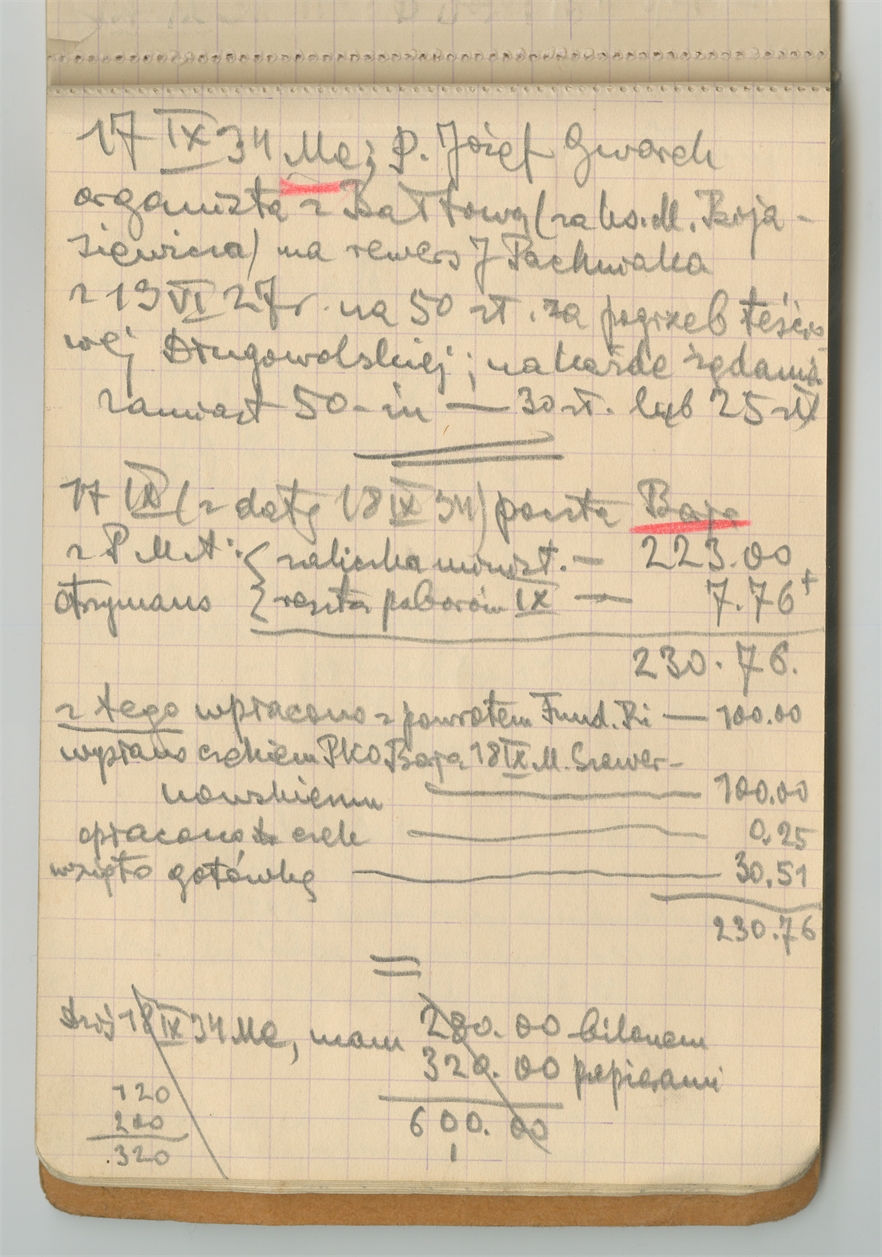 17 IX 34 Mę; P. Józef Gwarek
organista z Bałtowa (za ks. M. Boja-
siewicza) na rewers J Pachniaka
z 19 VI 27 r. na 50 zł. za pogrzeb teścio
wej Długowolskiej; na każde żądanie
zamiast 50-iu — 30 zł. lub 25 zł
17 IX (z datą 18 IX 34) poczta Baja
z P M A: zaliczka minist. — 223.00
otrzymano reszta poborów IX — 7.76 +
230.76.
z tego wpłacono z powrotem Fund. — 100.00
wysłano czekiem PKO Baja 18 IX M. Szewer-
nowskiemu 100.00
opłacono czek 0,25
wzięto gotówką 30,51
230.76
=
dziś 18 IX 34 Mę, mam 280.00 bilonem
320.00 papierami
120
200
320
600.00
1